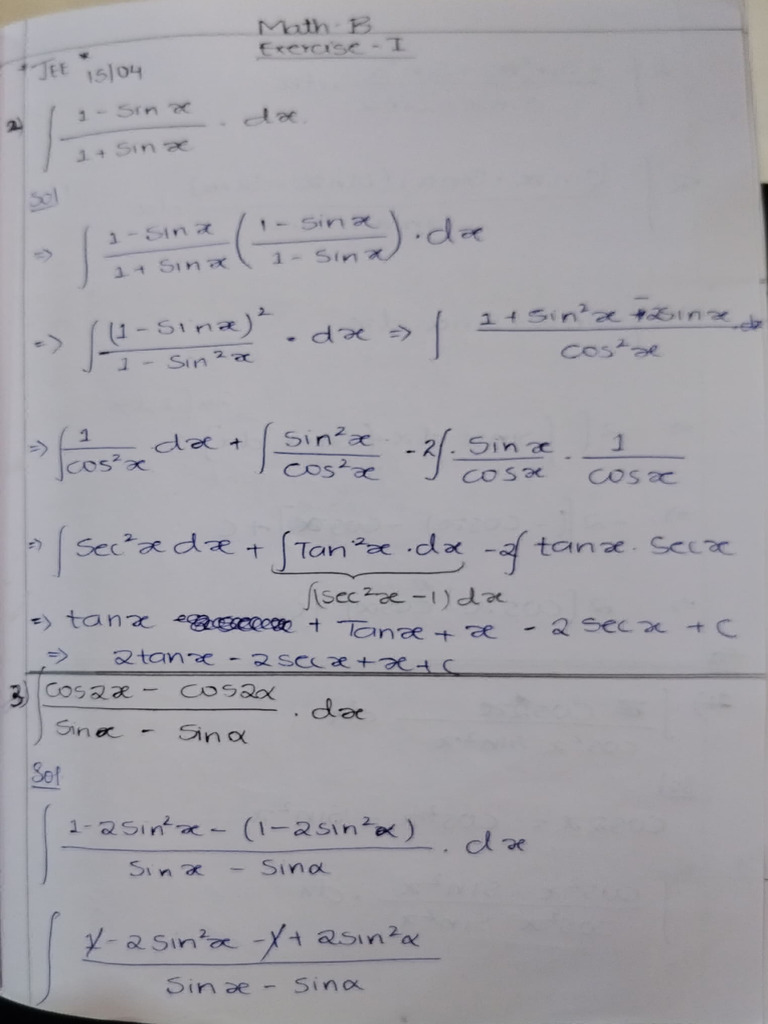 Math-B
Exercise - I
* JEE * 15/04
2) ∫ (1 - Sin x)/(1 + Sin x) . dx.
Sol
=> ∫ (1 - Sin x)/(1 + Sin x) ((1 - Sin x)/(1 - Sin x)) . dx
=> ∫ (1 - Sin x)²/(1 - Sin²x) . dx => ∫ (1 + Sin²x - 2Sin x)/(cos²x) . dx
=> ∫ 1/(cos²x) dx + ∫ Sin²x/cos²x - 2∫ . Sin x/cos x . 1/cos x
=> ∫ Sec²x dx + ∫ Tan²x . dx - 2∫ tan x . Sec x
∫(sec²x - 1) dx
=> tan x + Tan x + x - 2 sec x + C
=> 2 tan x - 2 sec x + x + C
3) ∫ (cos2x - cos2α)/(Sin x - Sin α) . dx
Sol
∫ (1 - 2Sin²x - (1 - 2sin²α))/(Sin x - Sin α) . dx
∫ (1 - 2Sin²x - 1 + 2sin²α)/(Sin x - Sin α)